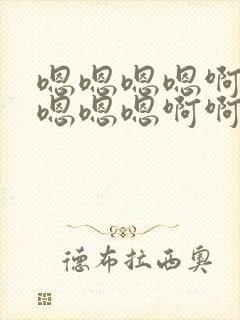 嗯嗯嗯嗯啊
嗯嗯嗯啊啊
德布拉西奥